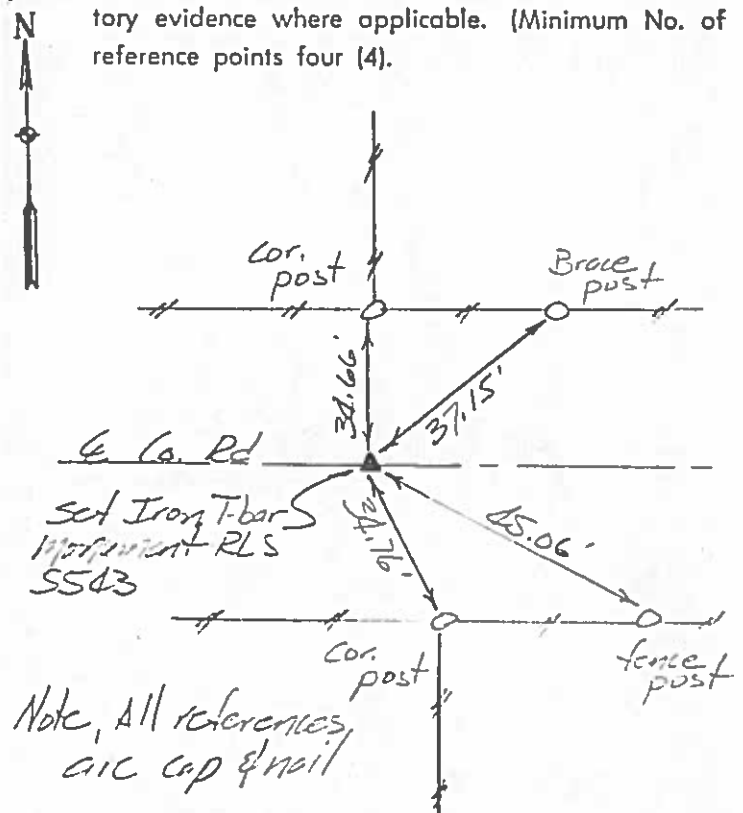 N
tory evidence where applicable. (Minimum No. of
reference points four (4).
Cor.
post
Brace
post
34.66'
37.15'
℄ Co. Rd
Set Iron T-bar
Monument RLS
S543
34.76'
45.06'
Cor.
post
fence
post
Note, All references
are cap & nail